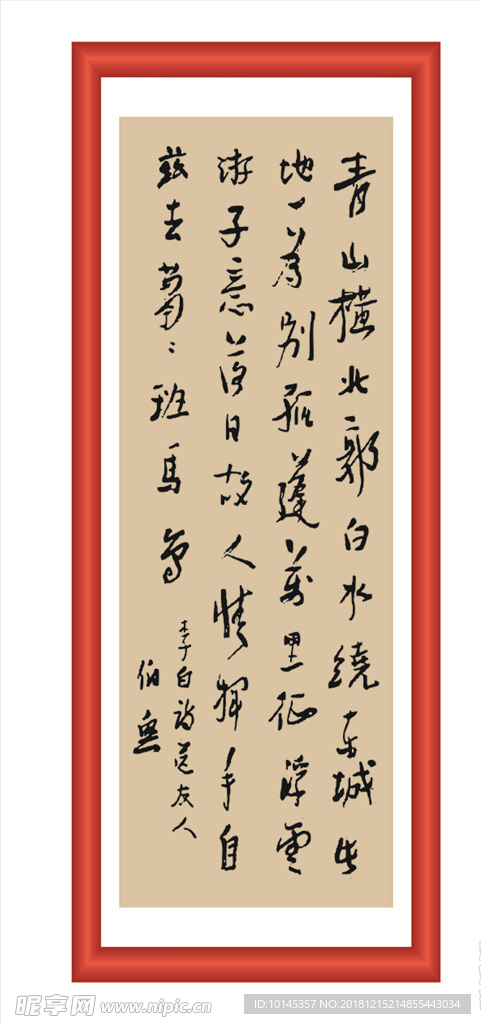 青山橫北郭白水繞东城此
地一为别孤蓬萬里征浮雲
游子意落日故人情揮手自
兹去蕭〻班馬鸣
李白诗送友人
伯
昵享网 www.nipic.cn
ID:10145357 NO:20181215214855443034